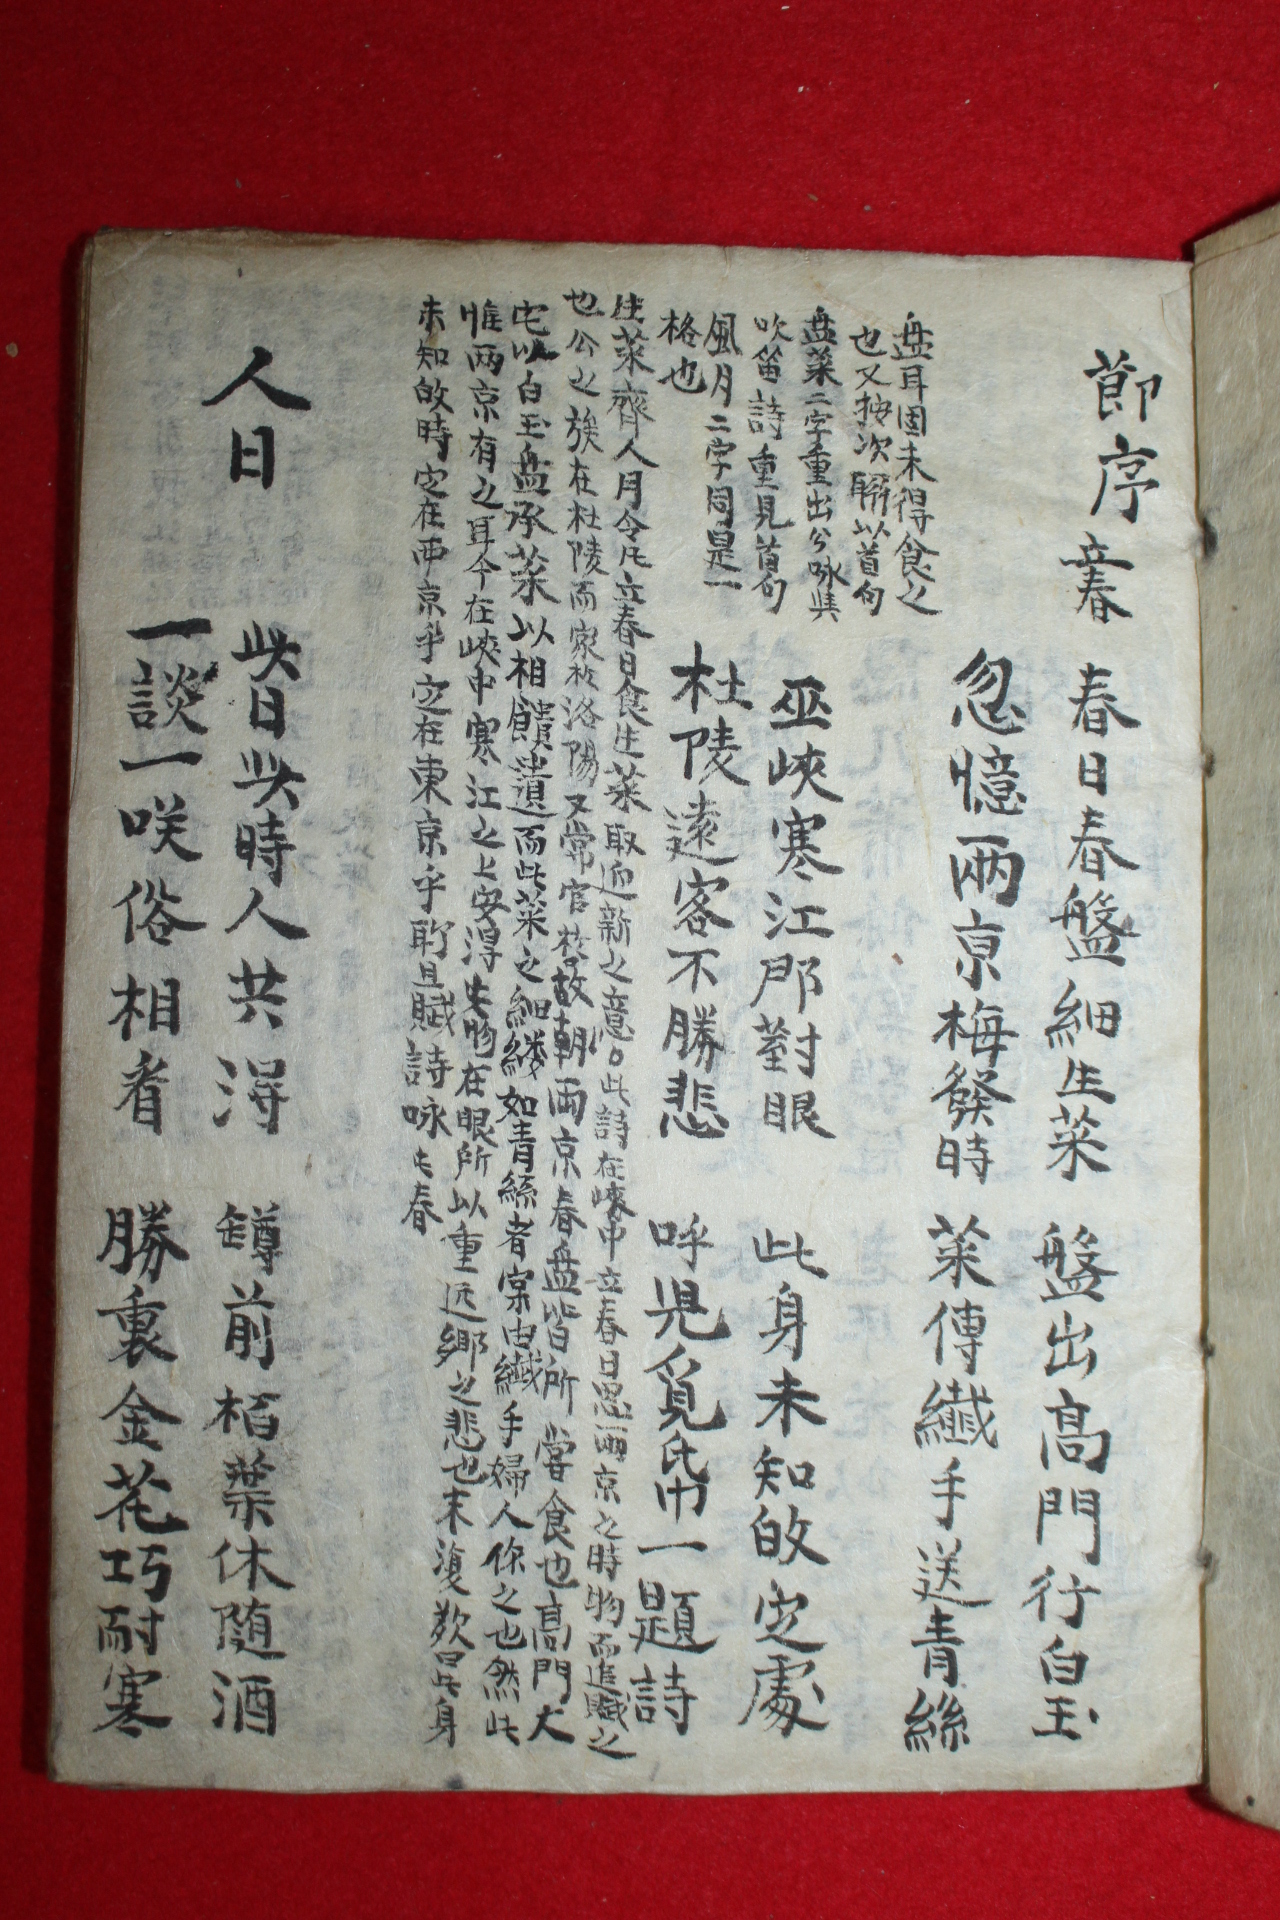 節序
立春
春日春盤細生菜 盤出高門行白玉
忽憶兩京梅發時 菜傳纖手送青絲
盘耳固未得食之
也又按次聯以首句
盘菜二字重出公咏吳
吹笛詩重見首句
風月二字同是一
格也
巫峽寒江那對眼 此身未知故定處
杜陵遠客不勝悲 呼児覓帋一題詩
生菜齊人月令凡立春日食生菜取迎新之意○此詩在峽中立春日思兩京之時物而追賦之
也公之族在杜陵而家於洛陽又常官於故朝兩京春盘皆所嘗食也高門大
宅以白玉盘承菜以相饋遺而此菜之細縷如青絲者宲由纎手婦人作之也然此
惟兩京有之耳今在峽中寒江之上安淂此物在眼所以重远鄉之悲也末復歎曰此身
未知故時定在西京乎定在東京乎聊且賦詩咏此春
人日
此日此時人共淂 罇前栢葉休随酒
一談一咲俗相看 勝裏金花巧耐寒